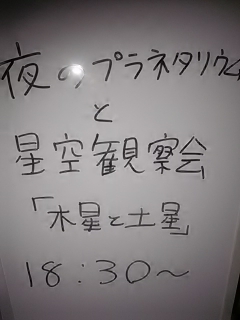 夜のプラネタリウム
と
星空観察会
「木星と土星」
18:30～